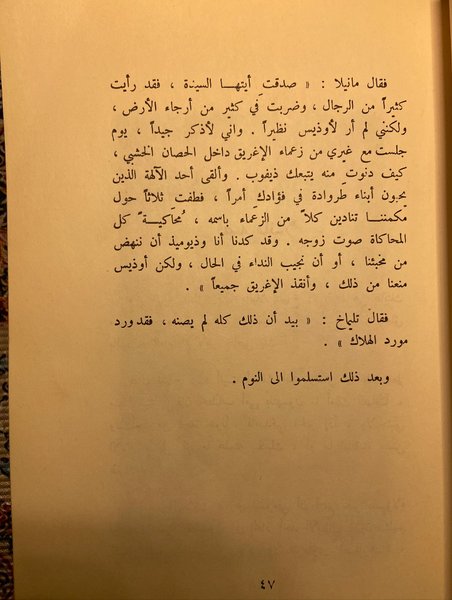 فقال مانيلا : « صدقتِ أيتهـا السيدة ، فقد رأيت
كثيراً من الرجال ، وضربت في كثير من أرجاء الأرض ،
ولكنني لم أر لأوذيس نظيراً . واني لأذكر جيداً ، يوم
جلست مع غيري من زعماء الإغريق داخل الحصان الخشبي ،
كيف دنوتِ منه يتبعك ذيفوب . وألقى أحد الآلهة الذين
يحبون أبناء طروادة في فؤادكِ أمراً ، فطفتِ ثلاثاً حول
مكمننـا تنادين كلاً من الزعماء باسمه ، مُحاكيـةً كل
المحاكاة صوت زوجه . وقد كدنا أنا وذيوميذ أن ننهض
من مخبئنا ، أو أن نجيب النداء في الحال ، ولكن أوذيس
منعنا من ذلك ، وأنقذ الإغريق جميعاً » .
فقال تليماخ : « بيد أن ذلك كله لم يصنه ، فقد ورد
مورد الهلاك » .
وبعد ذلك استسلموا الى النوم .
٤٧